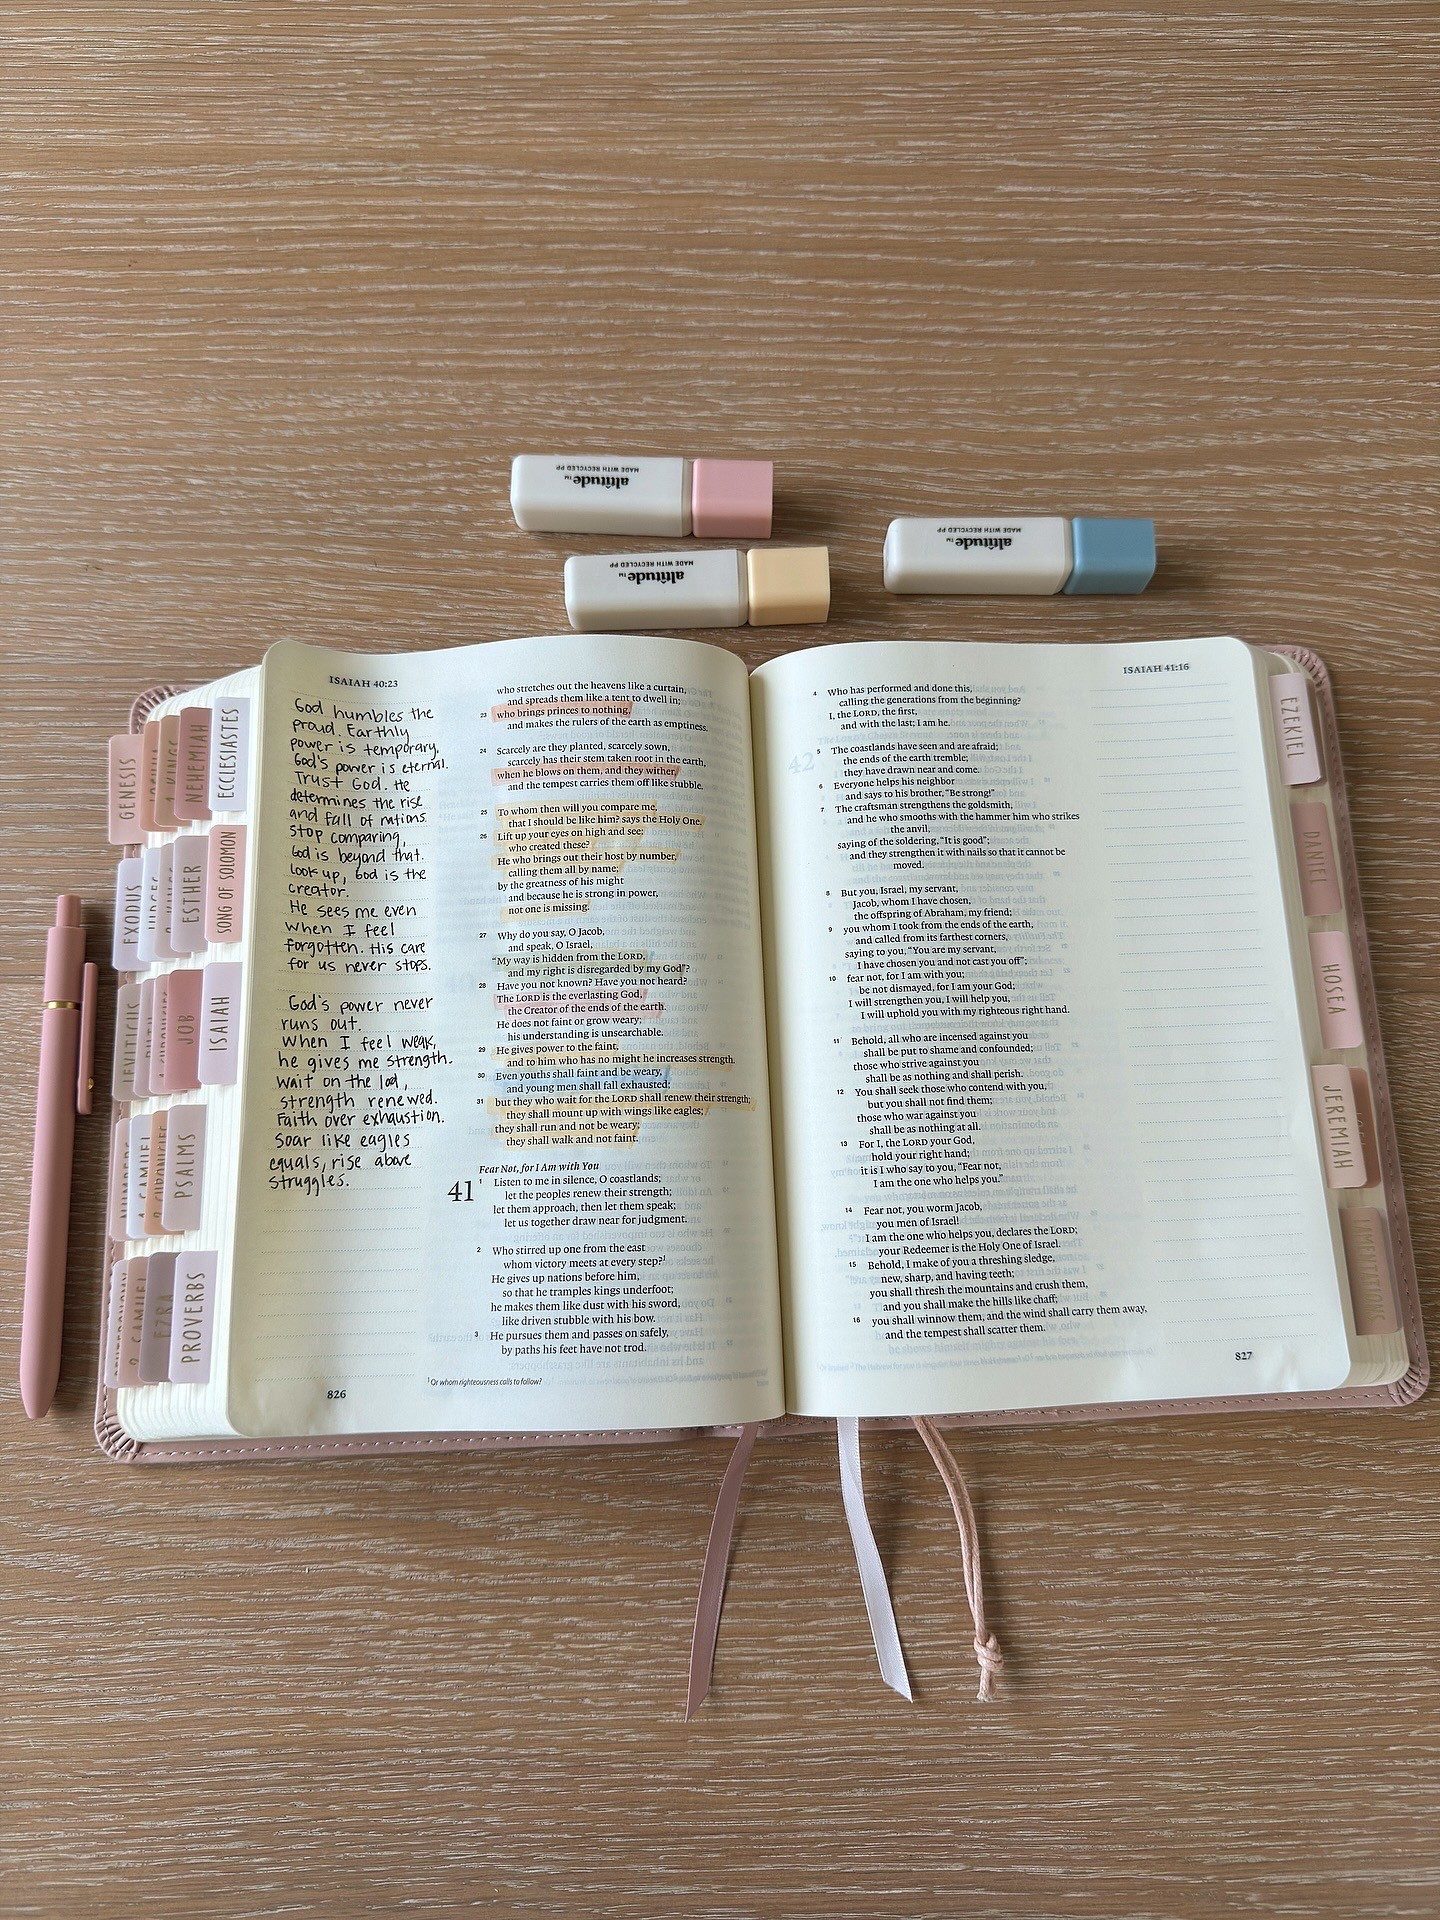 altitude™
MADE WITH RECYCLED PP
altitude™
MADE WITH RECYCLED PP
altitude™
MADE WITH RECYCLED PP
GENESIS
NEHEMIAH
ECCLESIASTES
EXODUS
ESTHER
SONG OF SOLOMON
LEVITICUS
JOB
ISAIAH
NUMBERS
1 SAMUEL
PSALMS
2 SAMUEL
EZRA
PROVERBS
ISAIAH 40:23
God humbles the
proud. Earthly
power is temporary.
God's power is eternal.
Trust God. He
determines the rise
and fall of nations.
Stop comparing,
God is beyond that.
look up, God is the
creator.
He sees me even
when I feel
forgotten. His care
for us never stops.
God's power never
runs out.
When I feel weak,
he gives me strength.
Wait on the lod,
strength renewed.
Faith over exhaustion.
Soar like eagles
equals, rise above
struggles.
who stretches out the heavens like a curtain,
and spreads them like a tent to dwell in;
23 who brings princes to nothing,
and makes the rulers of the earth as emptiness.
24 Scarcely are they planted, scarcely sown,
scarcely has their stem taken root in the earth,
when he blows on them, and they wither,
and the tempest carries them off like stubble.
25 To whom then will you compare me,
that I should be like him? says the Holy One.
26 Lift up your eyes on high and see:
who created these?
He who brings out their host by number,
calling them all by name;
by the greatness of his might
and because he is strong in power,
not one is missing.
27 Why do you say, O Jacob,
and speak, O Israel,
“My way is hidden from the LORD,
and my right is disregarded by my God”?
28 Have you not known? Have you not heard?
The LORD is the everlasting God,
the Creator of the ends of the earth.
He does not faint or grow weary;
his understanding is unsearchable.
29 He gives power to the faint,
and to him who has no might he increases strength.
30 Even youths shall faint and be weary,
and young men shall fall exhausted;
31 but they who wait for the LORD shall renew their strength;
they shall mount up with wings like eagles;
they shall run and not be weary;
they shall walk and not faint.
Fear Not, for I Am with You
41 1 Listen to me in silence, O coastlands;
let the peoples renew their strength;
let them approach, then let them speak;
let us together draw near for judgment.
2 Who stirred up one from the east
whom victory meets at every step?1
He gives up nations before him,
so that he tramples kings underfoot;
he makes them like dust with his sword,
like driven stubble with his bow.
3 He pursues them and passes on safely,
by paths his feet have not trod.
1 Or whom righteousness calls to follow?
826
ISAIAH 41:16
4 Who has performed and done this,
calling the generations from the beginning?
I, the LORD, the first,
and with the last; I am he.
5 The coastlands have seen and are afraid;
the ends of the earth tremble;
they have drawn near and come.
6 Everyone helps his neighbor
and says to his brother, “Be strong!”
7 The craftsman strengthens the goldsmith,
and he who smooths with the hammer him who strikes
the anvil,
saying of the soldering, “It is good”;
and they strengthen it with nails so that it cannot be
moved.
8 But you, Israel, my servant,
Jacob, whom I have chosen,
the offspring of Abraham, my friend;
9 you whom I took from the ends of the earth,
and called from its farthest corners,
saying to you, “You are my servant,
I have chosen you and not cast you off”;
10 fear not, for I am with you;
be not dismayed, for I am your God;
I will strengthen you, I will help you,
I will uphold you with my righteous right hand.
11 Behold, all who are incensed against you
shall be put to shame and confounded;
those who strive against you
shall be as nothing and shall perish.
12 You shall seek those who contend with you,
but you shall not find them;
those who war against you
shall be as nothing at all.
13 For I, the LORD your God,
hold your right hand;
it is I who say to you, “Fear not,
I am the one who helps you.”
14 Fear not, you worm Jacob,
you men of Israel!
I am the one who helps you, declares the LORD;
your Redeemer is the Holy One of Israel.
15 Behold, I make of you a threshing sledge,
new, sharp, and having teeth;
you shall thresh the mountains and crush them,
and you shall make the hills like chaff;
16 you shall winnow them, and the wind shall carry them away,
and the tempest shall scatter them.
827
EZEKIEL
DANIEL
HOSEA
JEREMIAH